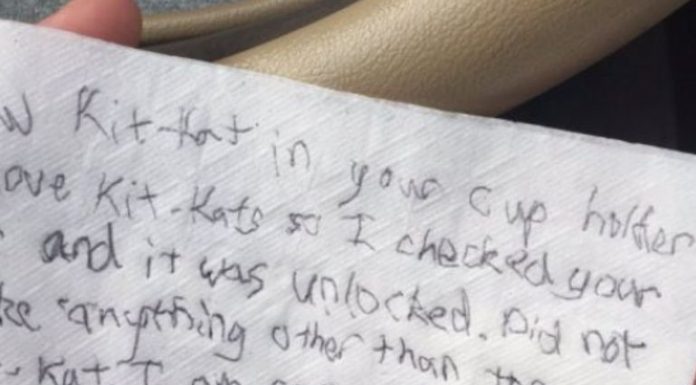 W Kit-Kat in your cup holder
ove Kit-Kats so I checked your
and it was unlocked. Did not
ke anything other than
Kat I am